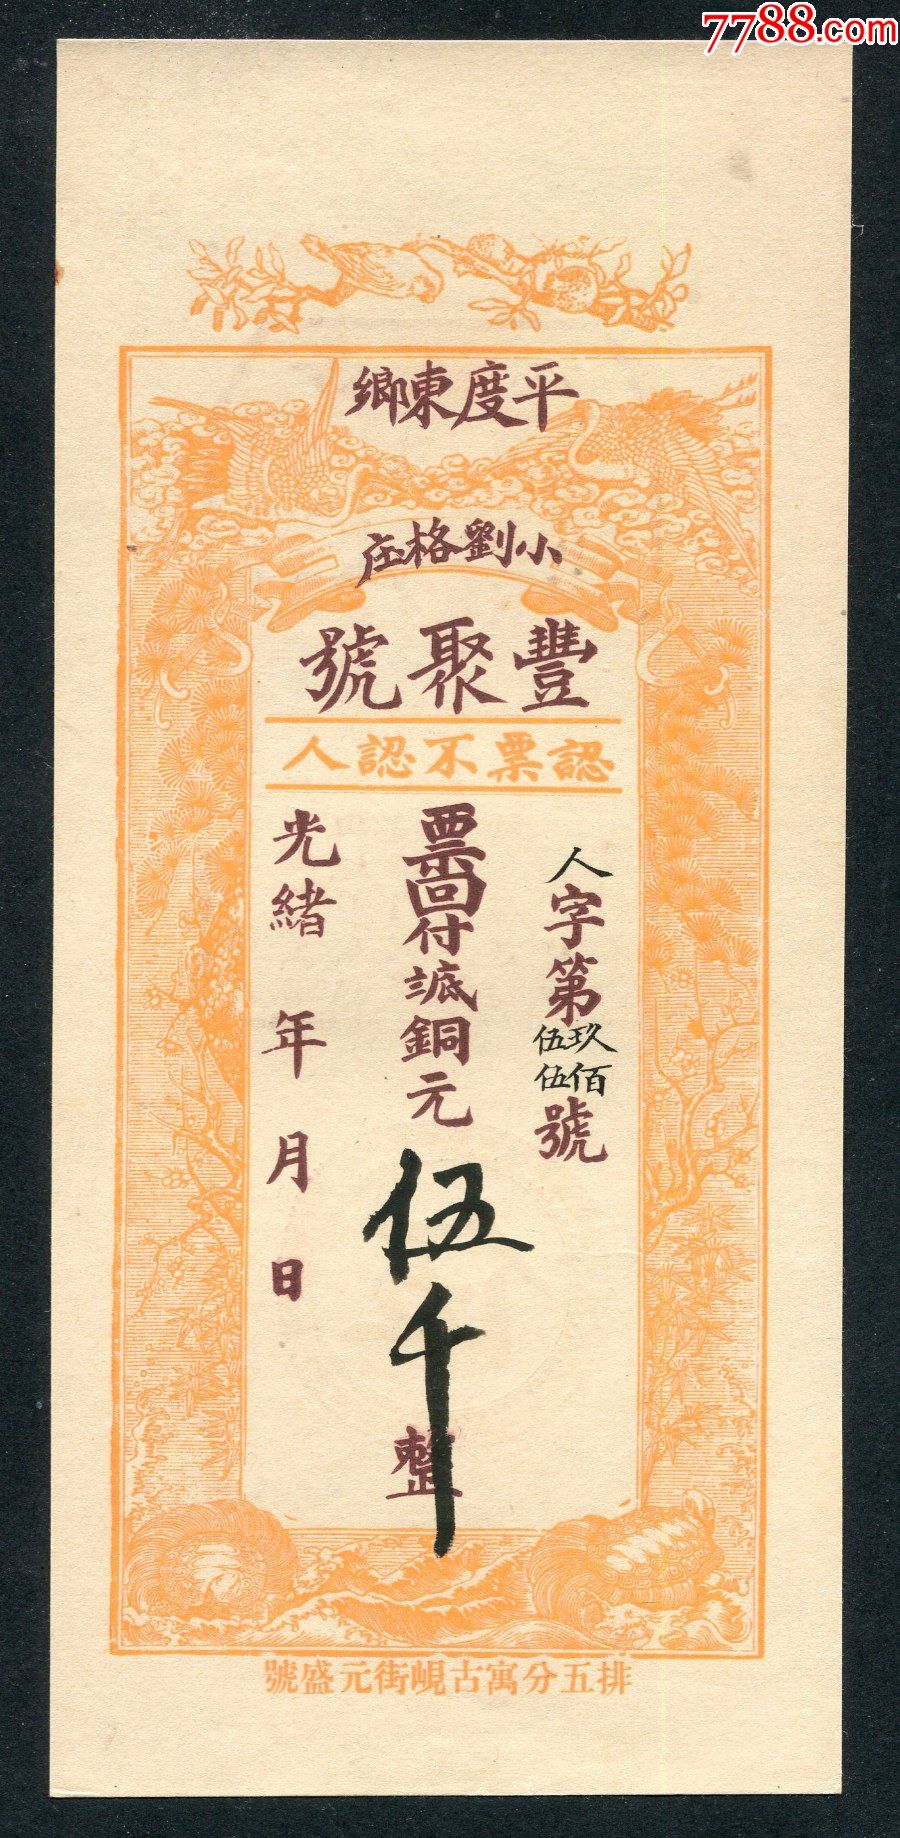 7788.com
平度東鄉
小劉格庄
豐聚號
認票不認人
人字第玖佰伍伍號
票回付㡳銅元伍千整
光緒 年 月 日
排五分寓古峴街元盛號